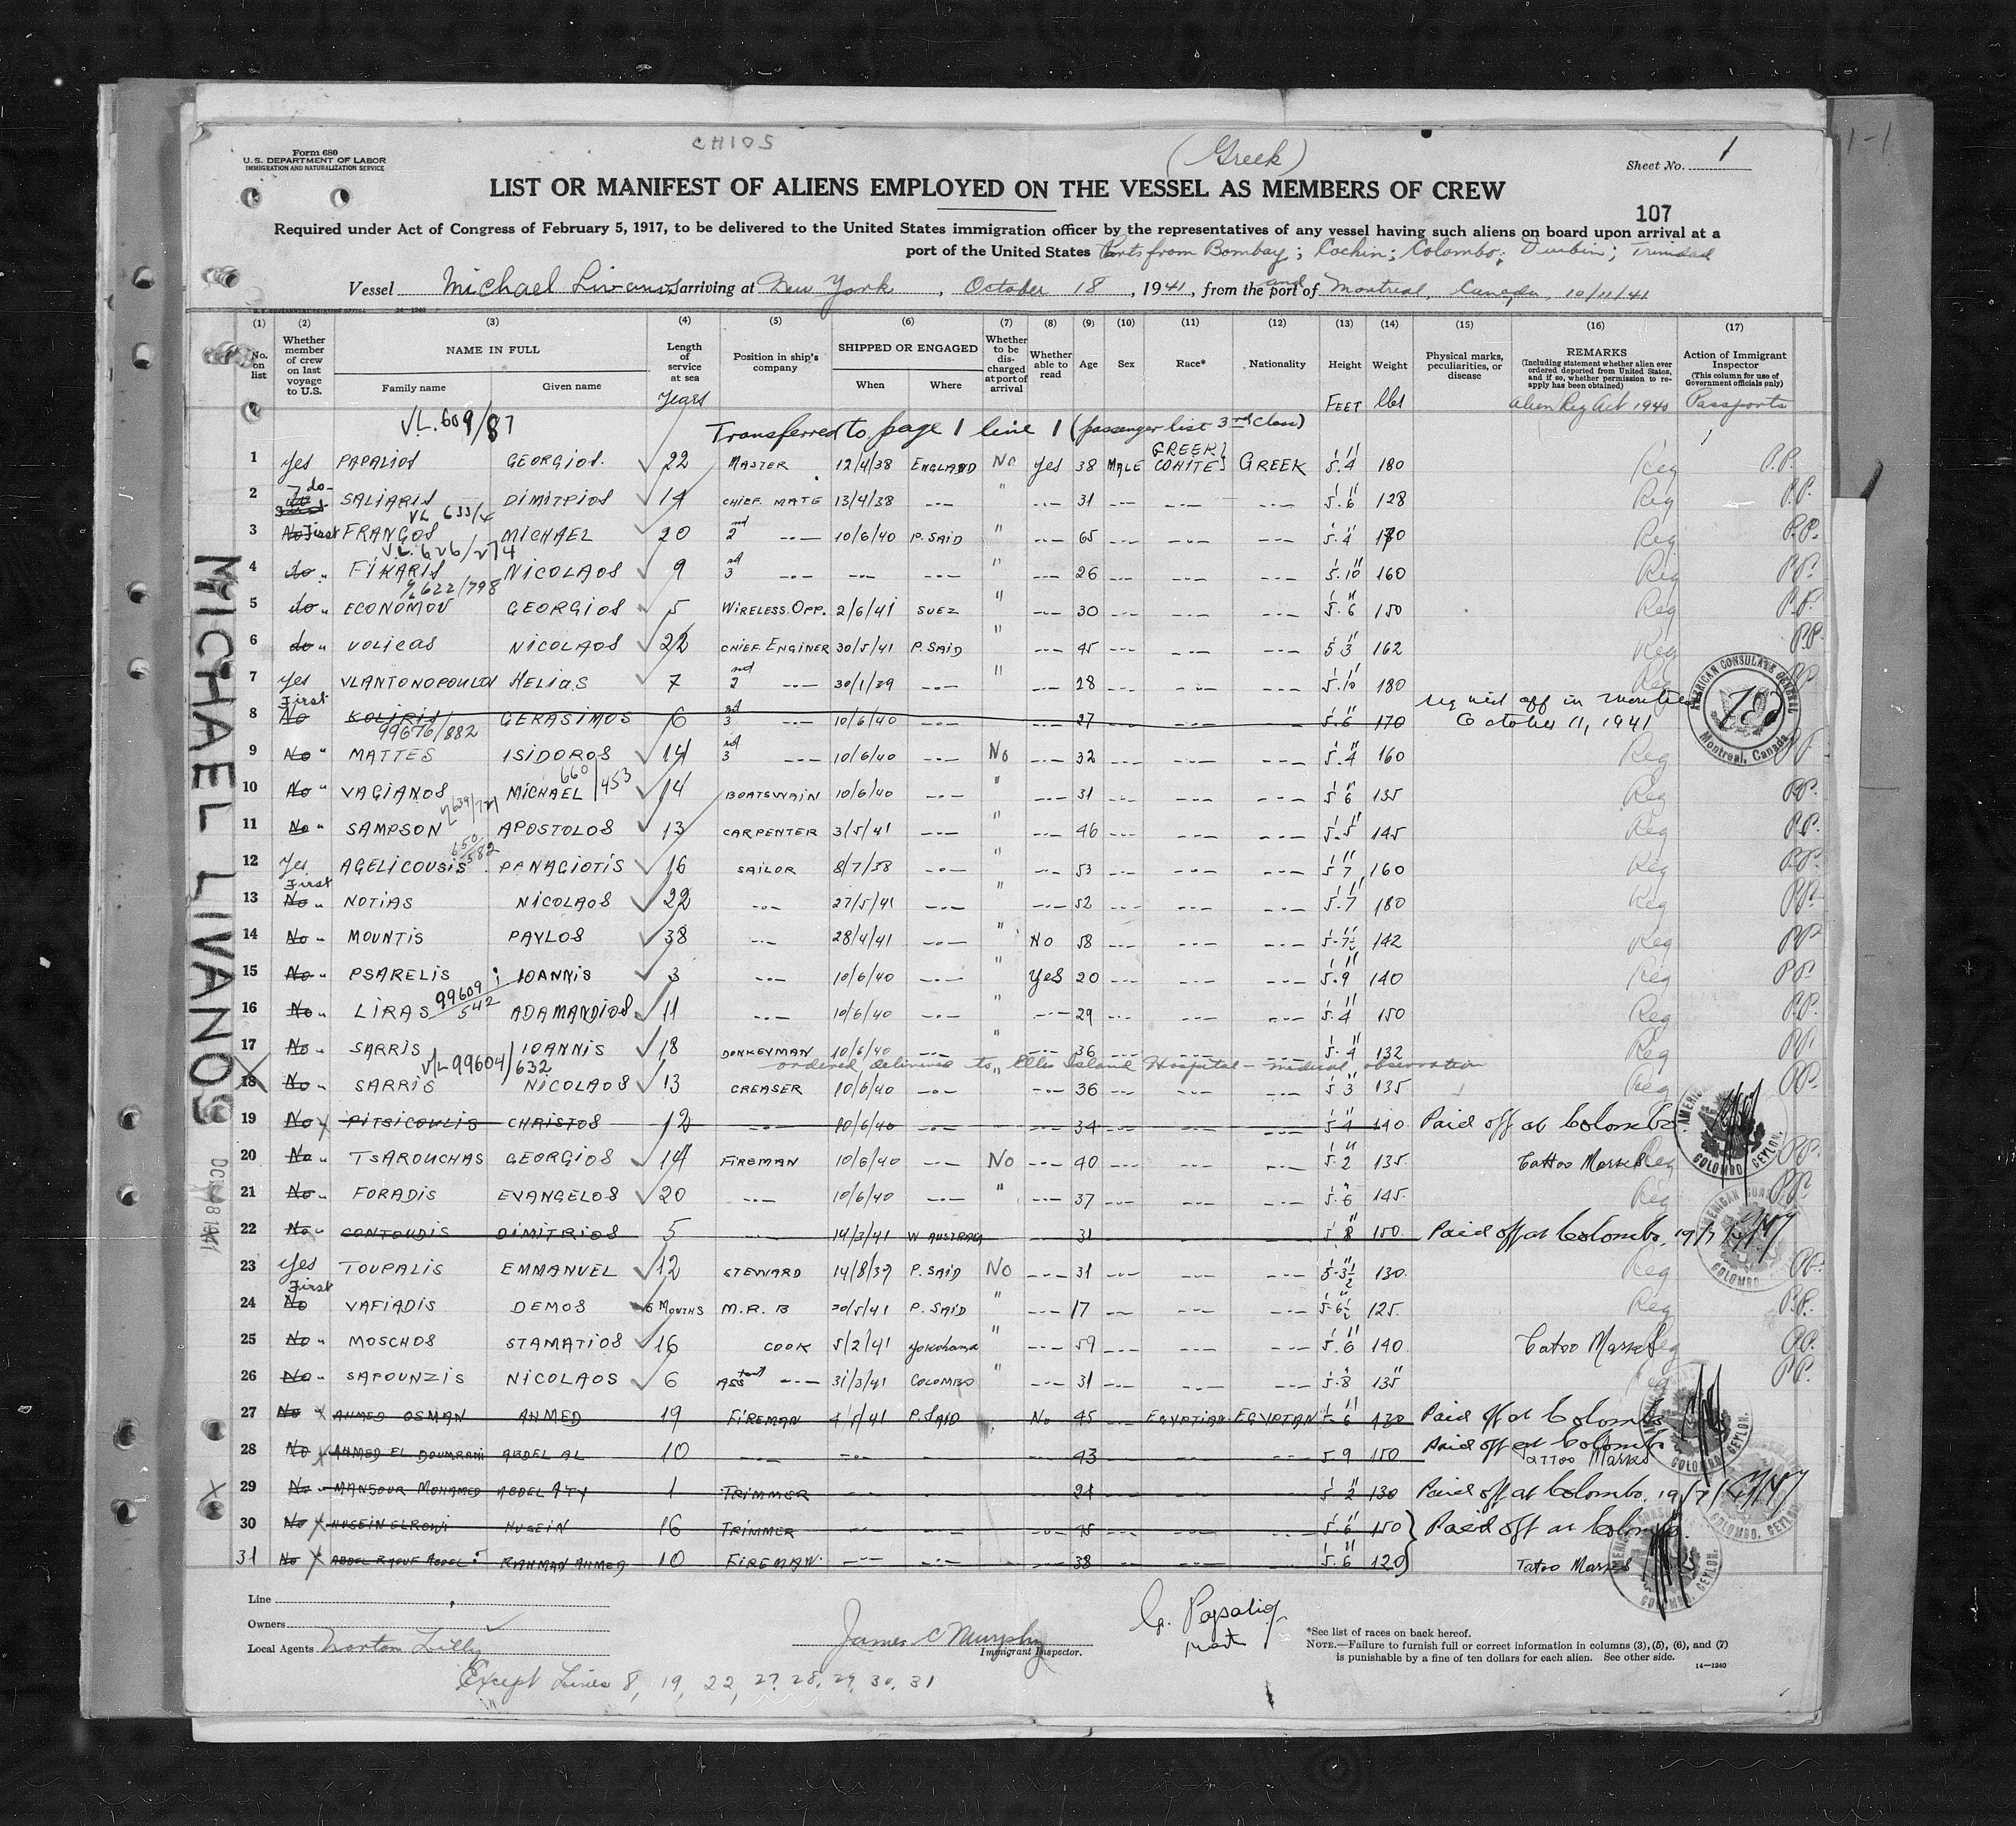 CHIOS
(Greek)
Form 680
U.S. DEPARTMENT OF LABOR
IMMIGRATION AND NATURALIZATION SERVICE
Sheet No. 1
LIST OR MANIFEST OF ALIENS EMPLOYED ON THE VESSEL AS MEMBERS OF CREW
107
Required under Act of Congress of February 5, 1917, to be delivered to the United States immigration officer by the representatives of any vessel having such aliens on board upon arrival at a
port of the United States Ports from Bombay; Cochin; Colombo; Durbin; Trinidad
Vessel Michael Livanos arriving at New York, October 18, 1941, from the port of and Montreal, Canada, 10/11/41
(1) (2) (3) (4) (5) (6) (7) (8) (9) (10) (11) (12) (13) (14) (15) (16) (17)
No. on list
Whether member of crew on last voyage to U.S.
NAME IN FULL
Family name Given name
Length of service at sea
Years
Position in ship's company
SHIPPED OR ENGAGED
When Where
Whether to be discharged at port of arrival
Whether able to read
Age Sex Race* Nationality
Height FEET
Weight lbs
Physical marks, peculiarities, or disease
REMARKS
(Including statement whether alien ever ordered deported from United States, and if so, whether permission to reapply has been obtained)
Alien Reg Act 1940
Action of Immigrant Inspector
(This column for use of Government officials only)
Passports
V.L. 609/87 Transferred to page 1 line 1 (passenger list 3rd class)
1 yes PAPALIOS GEORGIOS. 22 MASTER 12/4/38 ENGLAND No yes 38 MALE GREEK WHITE GREEK 5.4 180 Reg P.P.
2 do SALIARIS DIMITPIOS 14 CHIEF MATE 13/4/38 -- " -- 31 -- -- -- 5.6 128 Reg P.P.
VL 633/4
3 No First FRANGOS MICHAEL 20 2nd -- 10/6/40 P. SAID " -- 65 -- -- -- 5.4 170 Reg P.P.
V.L. 626/274
4 do " FIKARIS NICOLAOS 9 3rd -- -- -- " -- 26 -- -- -- 5.10 160 Reg P.P.
622/798
5 do " ECONOMOU GEORGIOS 5 WIRELESS. OPP. 2/6/41 SUEZ " -- 30 -- -- -- 5.6 150 Reg P.P.
6 do " VOLICAS NICOLAOS 22 CHIEF ENGINER 30/5/41 P. SAID " -- 45 -- -- -- 5 3 162 Reg P.P.
7 yes VLANTONOPOULOS HELIAS 7 2nd -- 30/1/39 -- " -- 28 -- -- -- 5.10 180 Reg P.P.
8 First No KOLIRIS GERASIMOS 6 3rd -- 10/6/40 -- -- 27 -- -- -- 5.6 170 signed off in Montreal October 11, 1941
99676/882
9 No " MATTES ISIDOROS 14 3rd -- 10/6/40 -- No -- 32 -- -- -- 5.4 160 Reg P.P.
660/453
10 No " VAGIANOS MICHAEL 14 BOATSWAIN 10/6/40 -- " -- 31 -- -- -- 5 6 135 Reg P.P.
11 No " SAMPSON APOSTOLOS 13 CARPENTER 3/5/41 -- " -- 46 -- -- -- 5.5 145 Reg P.P.
650/582
12 Yes AGELICOUSIS PANAGIOTIS 16 SAILOR 8/7/38 -- " -- 53 -- -- -- 5 7 160 Reg P.P.
13 First No " NOTIAS NICOLAOS 22 -- 27/5/41 -- " -- 52 -- -- -- 5.7 180 Reg P.P.
14 No " MOUNTIS PAVLOS 38 -- 28/4/41 -- " No 58 -- -- -- 5-7½ 142 Reg P.P.
15 No " PSARELIS IOANNIS 3 -- 10/6/40 -- " Yes 20 -- -- -- 5.9 140 Reg P.P.
99609/542
16 No " LIRAS ADAMANDIOS 11 -- 10/6/40 -- " -- 29 -- -- -- 5.4 150 Reg P.P.
17 No " SARRIS IOANNIS 18 DONKEYMAN 10/6/40 -- -- 36 -- -- -- 5.4 132 Reg P.P.
V/L 99604/632 ordered delivered to Ellis Island Hospital - medical observation
18 No " SARRIS NICOLAOS 13 GREASER 10/6/40 -- -- 36 -- -- -- 5 3 135 Reg P.P.
19 No x PITSICOULIS CHRISTOS 12 -- 10/6/40 -- -- 34 -- -- -- 5 4 140 Paid off at Colombo
20 No " TSAROUCHAS GEORGIOS 14 FIREMAN 10/6/40 -- No -- 40 -- -- -- 5.2 135 Tattoo Marks Reg P.P.
21 No " FORADIS EVANGELOS 20 -- 10/6/40 -- " -- 37 -- -- -- 5.6 145 Reg P.P.
22 No " CONTOUDIS DIMITRIOS 5 -- 14/3/41 W AUSTRALIA 31 5 8 150 Paid off at Colombo, 19/7
23 Yes TOUPALIS EMMANUEL 12 STEWARD 14/8/37 P. SAID No -- 31 -- -- -- 5-3½ 130 Reg P.P.
24 First No VAFIADIS DEMOS 6 MONTHS M.R.B 20/5/41 P. SAID " -- 17 -- -- -- 5-6½ 125 Reg P.P.
25 No " MOSCHOS STAMATIOS 16 COOK 5/2/41 Yokohama " -- 59 -- -- -- 5.6 140 Tatoo Marks Reg P.P.
26 No " SAPOUNZIS NICOLAOS 6 ASStant -- 31/3/41 COLOMBO " -- 31 -- -- -- 5.8 135 Reg P.P.
27 No x AHMED OSMAN AHMED 19 FIREMAN P. SAID No 45 -- EGYPTIAN EGYPTAN 5 6 130 Paid off at Colombo
28 No x AHMED EL DOUMRANI ABDEL AL 10 -- -- 43 5 9 150 Paid off at Colombo
Tattoo Marks
29 No MANSOUR MOHAMED ABDEL ATY 1 TRIMMER 21 5 2 130 Paid off at Colombo. 19/7
30 No x HUSEIN ELROWI HUSEIN 16 TRIMMER -- -- -- 45 -- -- -- 5.6 150 Paid off at Colombo.
31 No x ABDEL RAOUF ABDEL RAHMAN AHMED 10 FIREMAN -- -- 38 -- 5.6 120 Tatoo Marks
MICHAEL LIVANOS
AMERICAN CONSULATE GENERAL
Montreal, Canada
COLOMBO, CEYLON.
Line
Owners
Local Agents Norton Lilly
James C Murphy
Immigrant Inspector.
*See list of races on back hereof.
NOTE.—Failure to furnish full or correct information in columns (3), (5), (6), and (7)
is punishable by a fine of ten dollars for each alien. See other side.
14—1240
Except Lines 8, 19, 22, 27, 28, 29, 30, 31